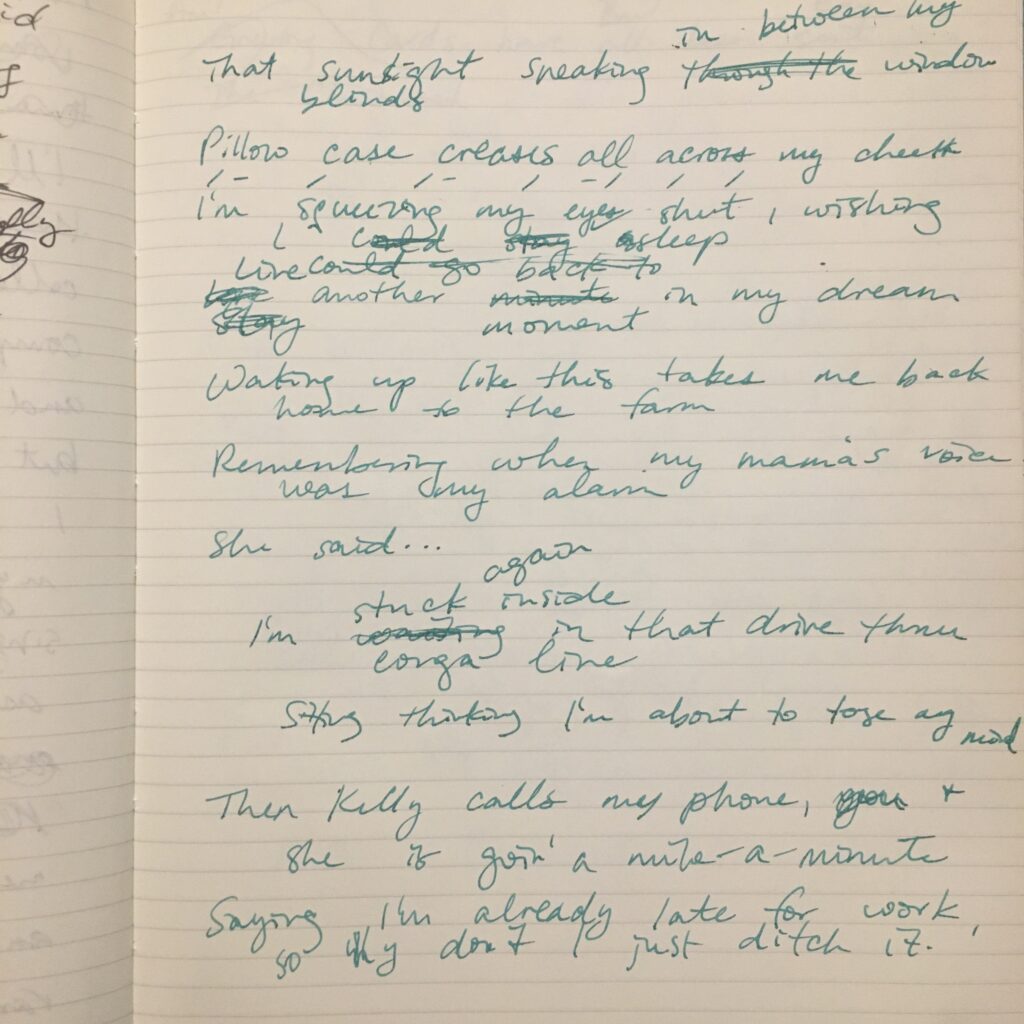 id
in between my
That sunlight sneaking through the window
blinds
Pillow case creases all across my cheek
I'm squeezing my eyes shut, wishing
I could stay asleep
Live could go back to
another minute in my dream
Stay moment
Waking up like this takes me back
home to the farm
Remembering when my mama's voice
was my alarm
She said...
again
stuck inside
I'm waiting in that drive thru
conga line
Sitting thinking I'm about to lose my
mind
Then Kelly calls my phone, you +
she is goin' a mile-a-minute
Saying I'm already late for work,
so why don't I just ditch it.